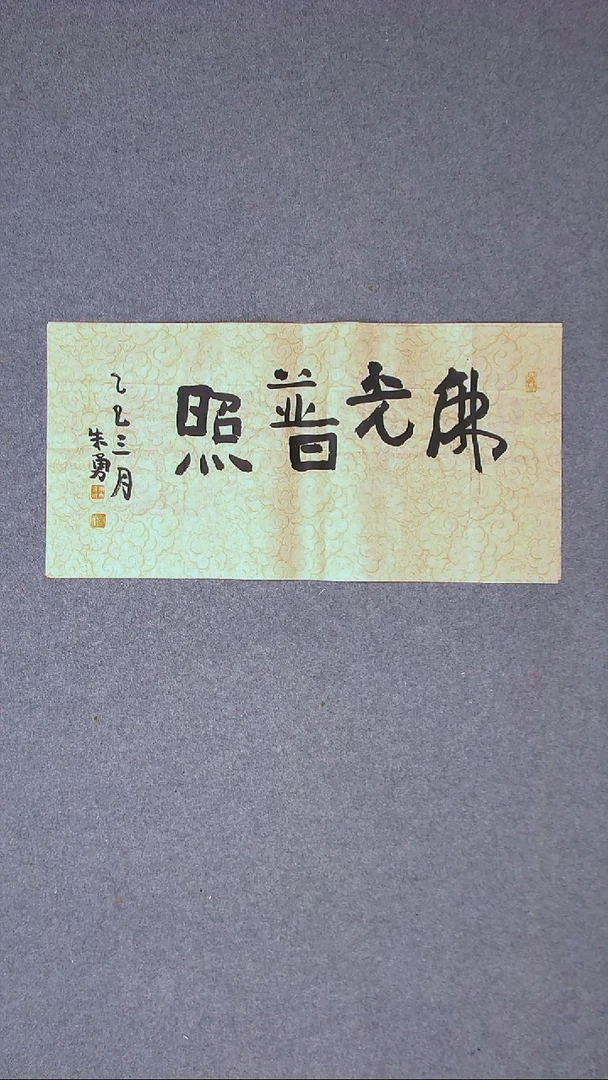 佛光普照
乙巳三月
朱勇